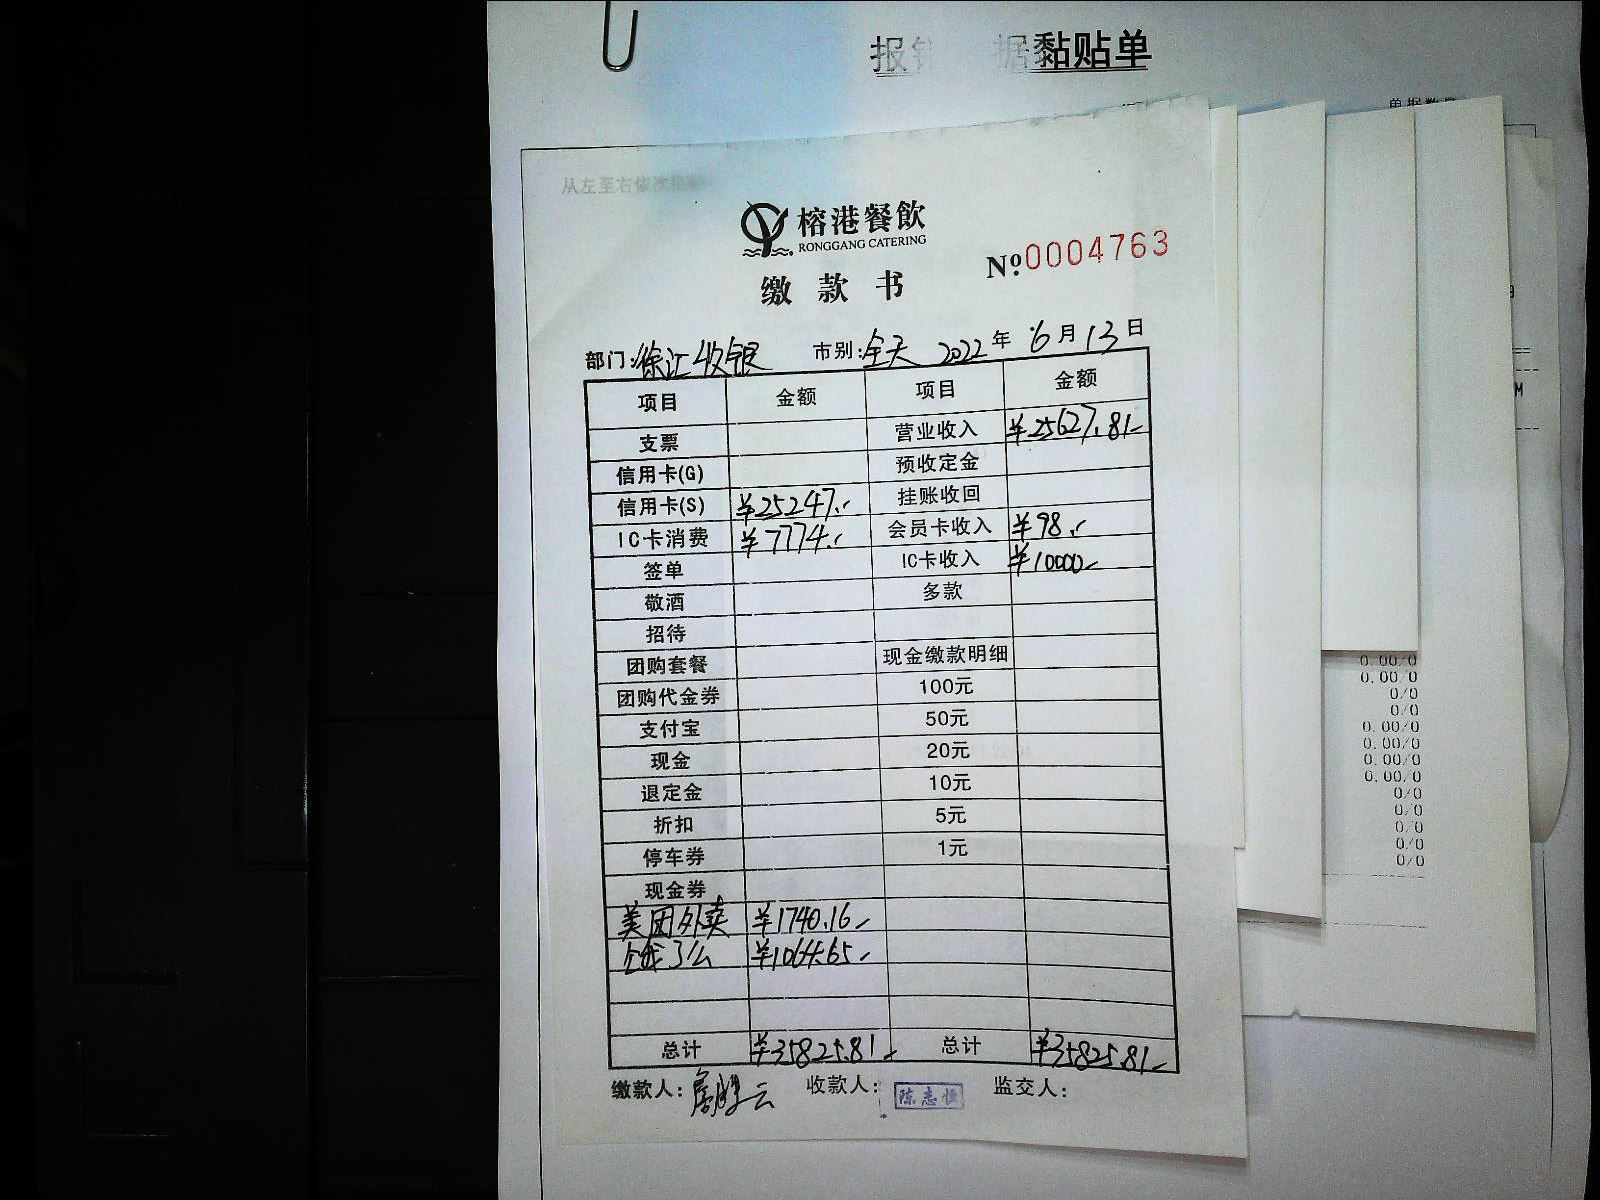 报 据黏贴单
单据数
从左至右依次
榕港餐飲
RONGGANG CATERING
缴款书
Nº:0004763
部门:徐汇收银 市别:全天 2022年6月13日
项目 金额 项目 金额
支票 营业收入 ¥25627.81
信用卡(G) 预收定金
信用卡(S) ¥25247.- 挂账收回
IC卡消费 ¥7774.- 会员卡收入 ¥98.-
签单 IC卡收入 ¥10000-
敬酒 多款
招待
团购套餐 现金缴款明细
团购代金券 100元
支付宝 50元
现金 20元
退定金 10元
折扣 5元
停车券 1元
现金券
美团外卖 ¥1740.16-
饿了么 ¥1064.65-
总计 ¥35825.81- 总计 ¥35825.81-
缴款人: 云 收款人: 陈志恒 监交人:
0.00/0
0.00/0
0/0
0/0
0.00/0
0.00/0
0.00/0
0.00/0
0/0
0/0
0/0
0/0
0/0